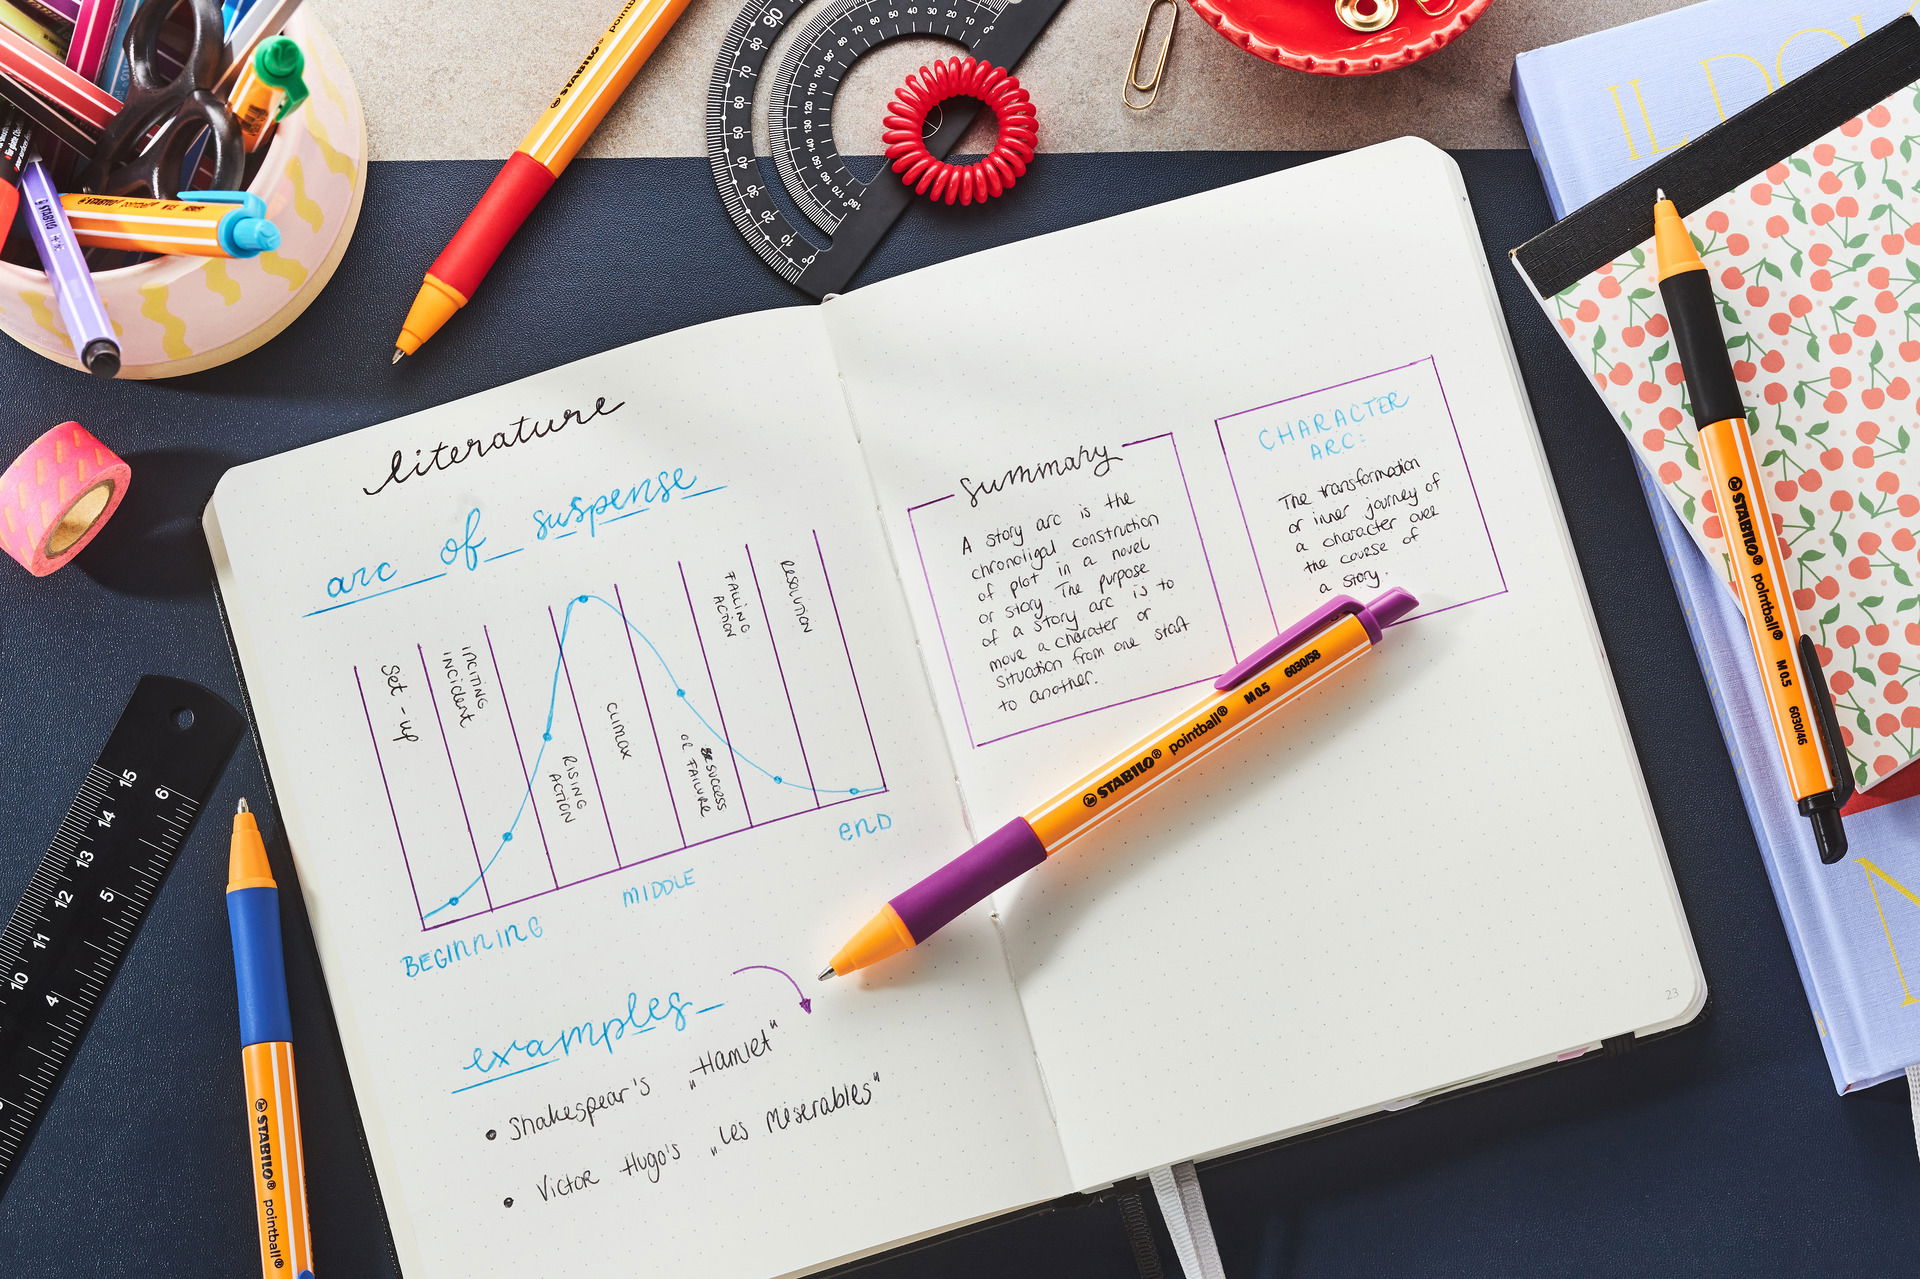 literature
arc of suspense
Set-up
INCITING
INCIDENT
RISING
ACTION
CLIMAX
SUCCESS
OR FAILURE
FALLING
ACTION
RESOLUTION
BEGINNING
MIDDLE
END
examples
• Shakespear's „Hamlet"
• Victor Hugo's „Les Miserables"
summary
A story arc is the
chronoligal construction
of plot in a novel
or story. The purpose
of a story arc is to
move a charater or
situation from one start
to another.
CHARACTER
ARC:
The transformation
or inner journey of
a character over
the course of
a story.
23
STABILO® pointball® M 0.5 6030/58
STABILO® pointball® M 0.5 6030/46
STABILO® pointball®
STABILO® point
STABILO
IL DO
N
15
14
13
12
11
10
6
5
4
90
80
70
60
50
40
30
20
10
0°